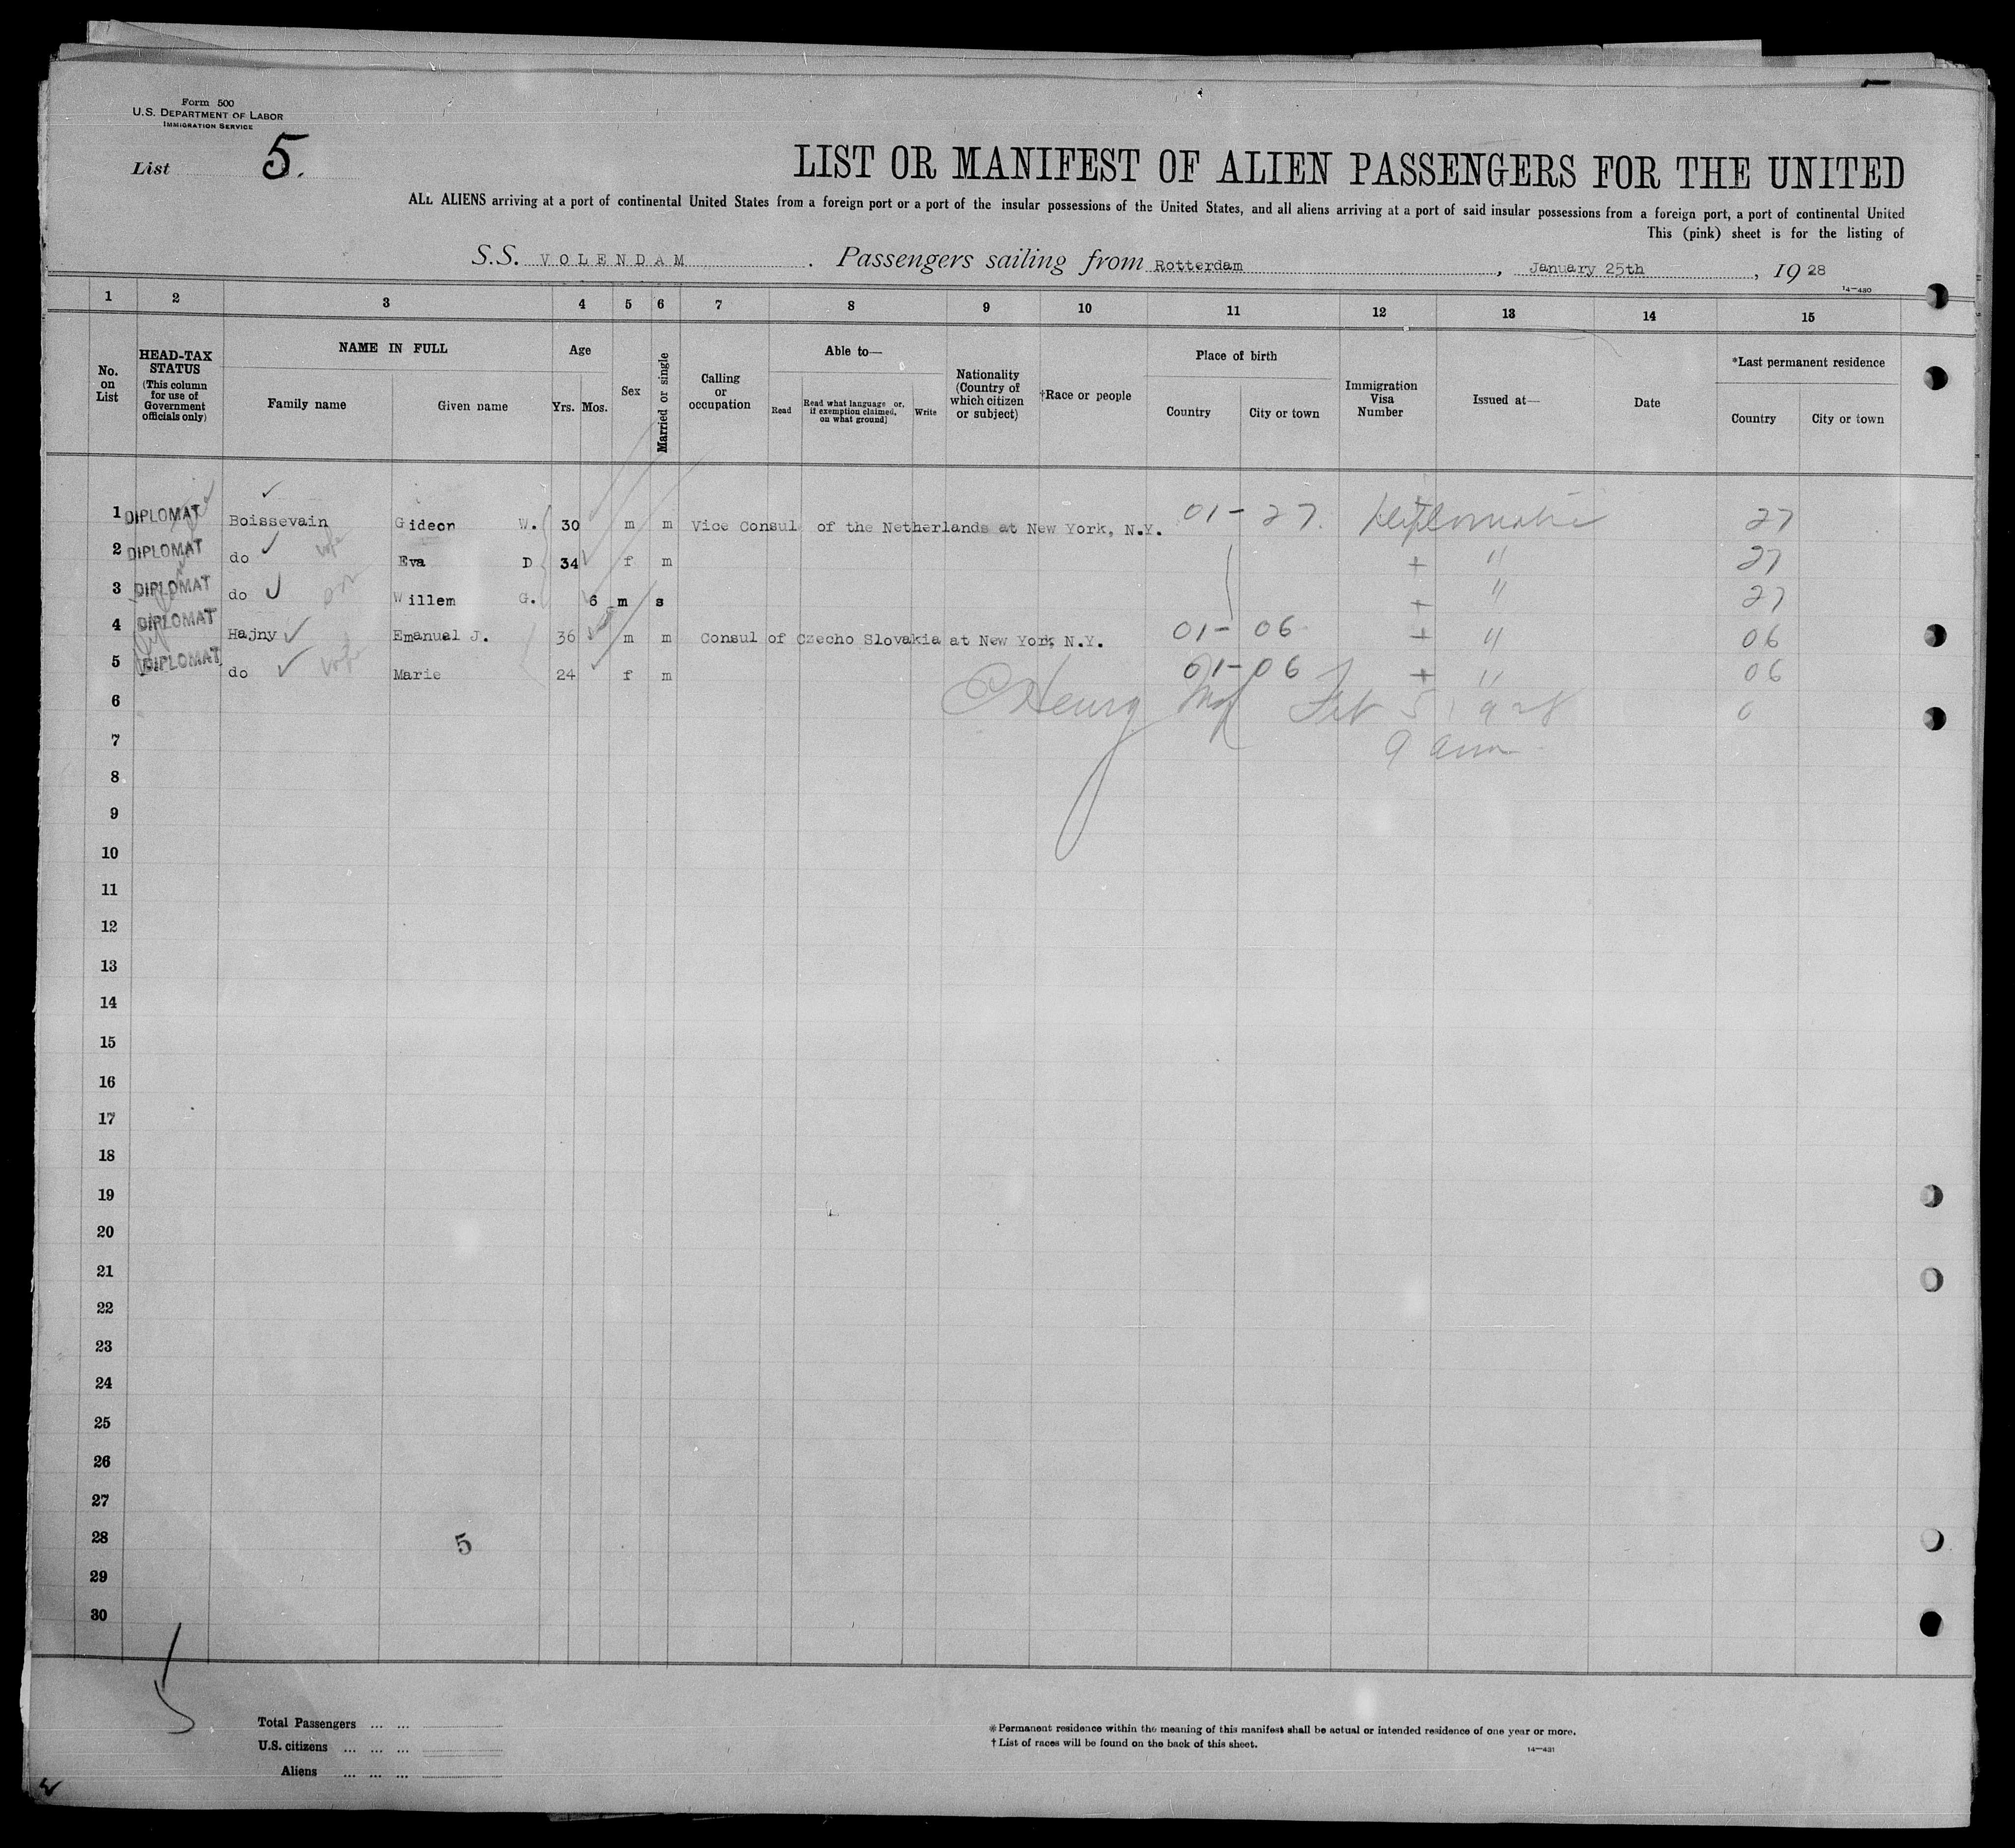 Form 500
U.S. DEPARTMENT OF LABOR
IMMIGRATION SERVICE
List 5.
LIST OR MANIFEST OF ALIEN PASSENGERS FOR THE UNITED
ALL ALIENS arriving at a port of continental United States from a foreign port or a port of the insular possessions of the United States, and all aliens arriving at a port of said insular possessions from a foreign port, a port of continental United
This (pink) sheet is for the listing of
S.S. VOLENDAM. Passengers sailing from Rotterdam, January 25th, 1928
14—430
1 2 3 4 5 6 7 8 9 10 11 12 13 14 15
No. on List
HEAD-TAX STATUS (This column for use of Government officials only)
NAME IN FULL
Family name Given name
Age
Yrs. Mos.
Sex
Married or single
Calling or occupation
Able to—
Read
Read what language or, if exemption claimed, on what ground]
Write
Nationality (Country of which citizen or subject)
†Race or people
Place of birth
Country City or town
Immigration Visa Number
Issued at—
Date
*Last permanent residence
Country City or town
1 DIPLOMAT Boissevain Gideon W. 30 m m Vice Consul of the Netherlands at New York, N.Y. 01-27. Diplomatic 27
2 DIPLOMAT do wife Eva D 34 f m + " 27
3 DIPLOMAT do son Willem G. 6 m s + " 27
4 DIPLOMAT Hajny Emanuel J. 36 m m Consul of Czecho Slovakia at New York, N.Y. 01-06 + " 06
5 DIPLOMAT do wife Marie 24 f m 01-06 + " 06
6 Henry Feb 5 1928
7 9 am
8
9
10
11
12
13
14
15
16
17
18
19
20
21
22
23
24
25
26
27
28 5
29
30
5
Total Passengers ... ...
U.S. citizens ... ... ...
Aliens ... ... ...
*Permanent residence within the meaning of this manifest shall be actual or intended residence of one year or more.
†List of races will be found on the back of this sheet.
14—431